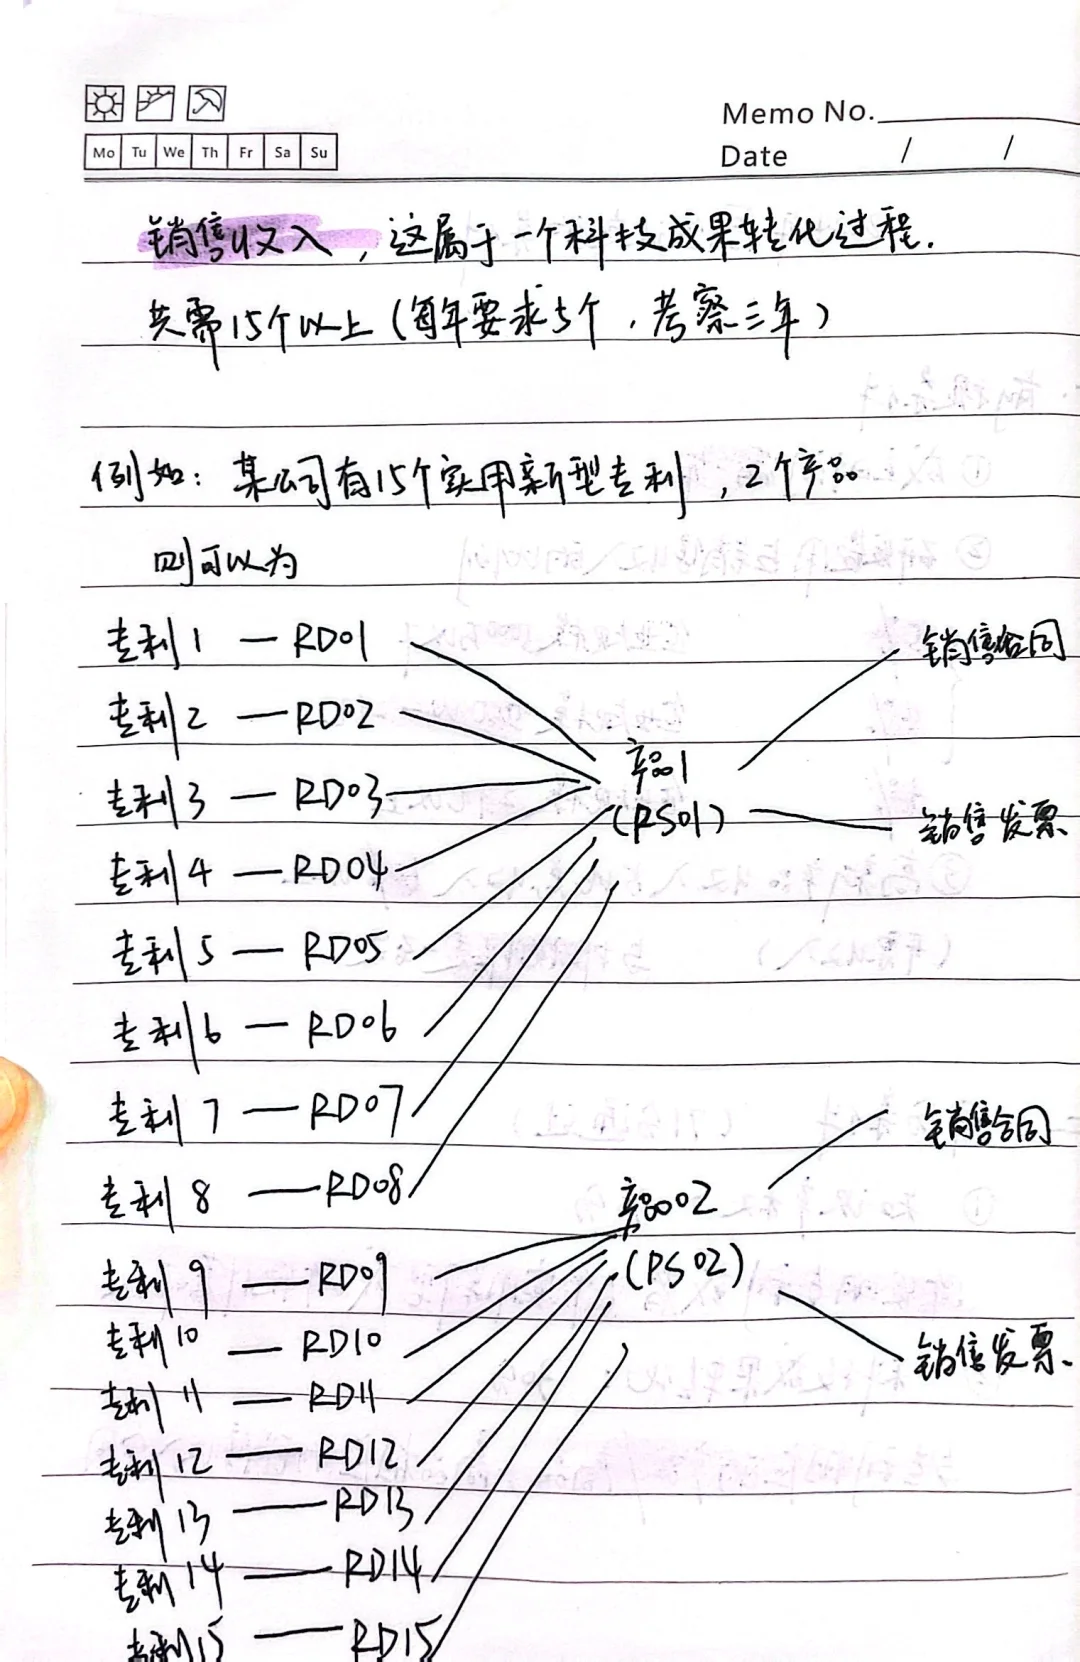 Memo No.
Mo Tu We Th Fr Sa Su
Date / /
销售收入，这属于一个科技成果转化过程.
共需15个以上（每年要求5个，考察三年）
例如：某公司有15个实用新型专利，2个产品
则可以为
专利1 — RD01
销售合同
专利2 — RD02
产品1
专利3 — RD03
(PS01)
销售发票
专利4 — RD04
专利5 — RD05
专利6 — RD06
专利7 — RD07
销售合同
专利8 — RD08
产品02
专利9 — RD09
(PS02)
专利10 — RD10
销售发票.
专利11 — RD11
专利12 — RD12
专利13 — RD13
专利14 — RD14
专利15 — RD15